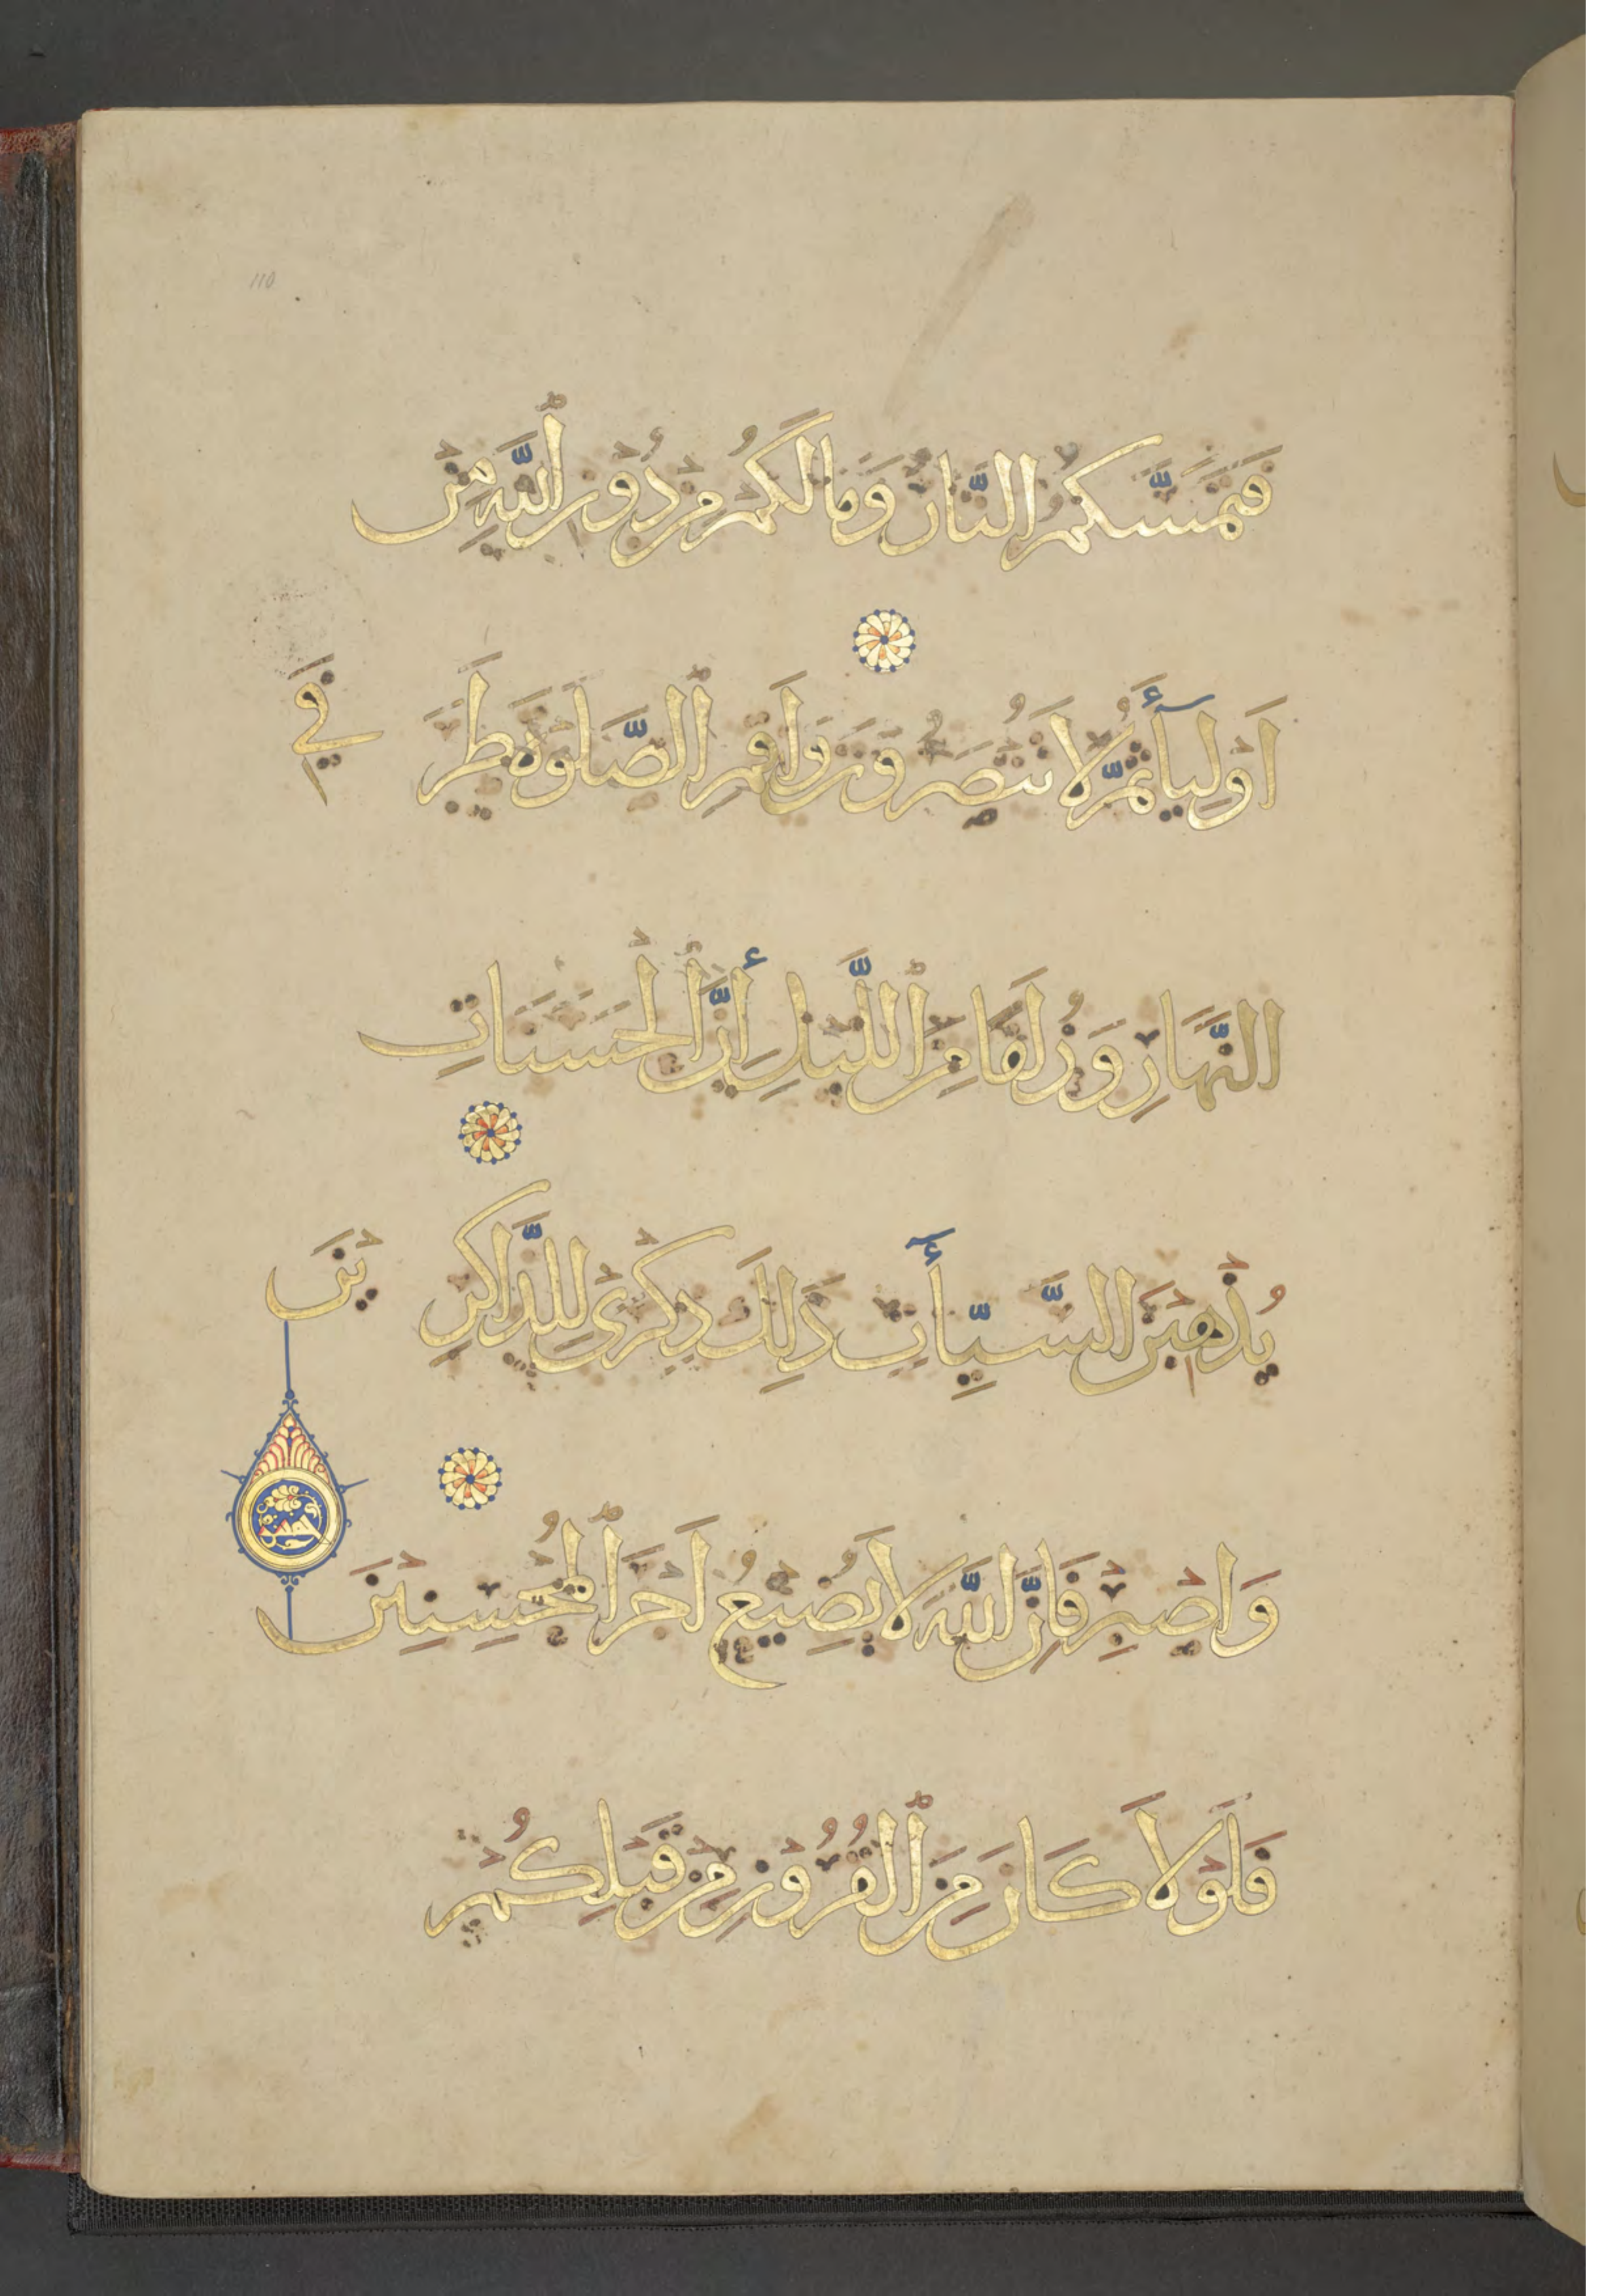 110
فَتَمَسَّكُمُ النَّارُ وَمَا لَكُمْ مِنْ دُونِ ٱللَّهِ مِنْ
اَوْلِيَآءَ ثُمَّ لَا تُنْصَرُونَ وَاَقِمِ ٱلصَّلَوٰةَ طَرَفَيِ
النَّهَارِ وَزُلَفًا مِنَ ٱللَّيْلِ إِنَّ ٱلْحَسَنَاتِ
يُذْهِبْنَ السَّيِّأٓتِ ذَلِكَ ذِكْرَى لِلذَّاكِرِينَ
وَاصْبِرْ فَاِنَّ اللَّهَ لَا يُضِيعُ اَجْرَ ٱلْمُحْسِنِينَ
فَلَوْلَا كَانَ مِنَ ٱلْقُرُونِ مِنْ قَبْلِكُمْ